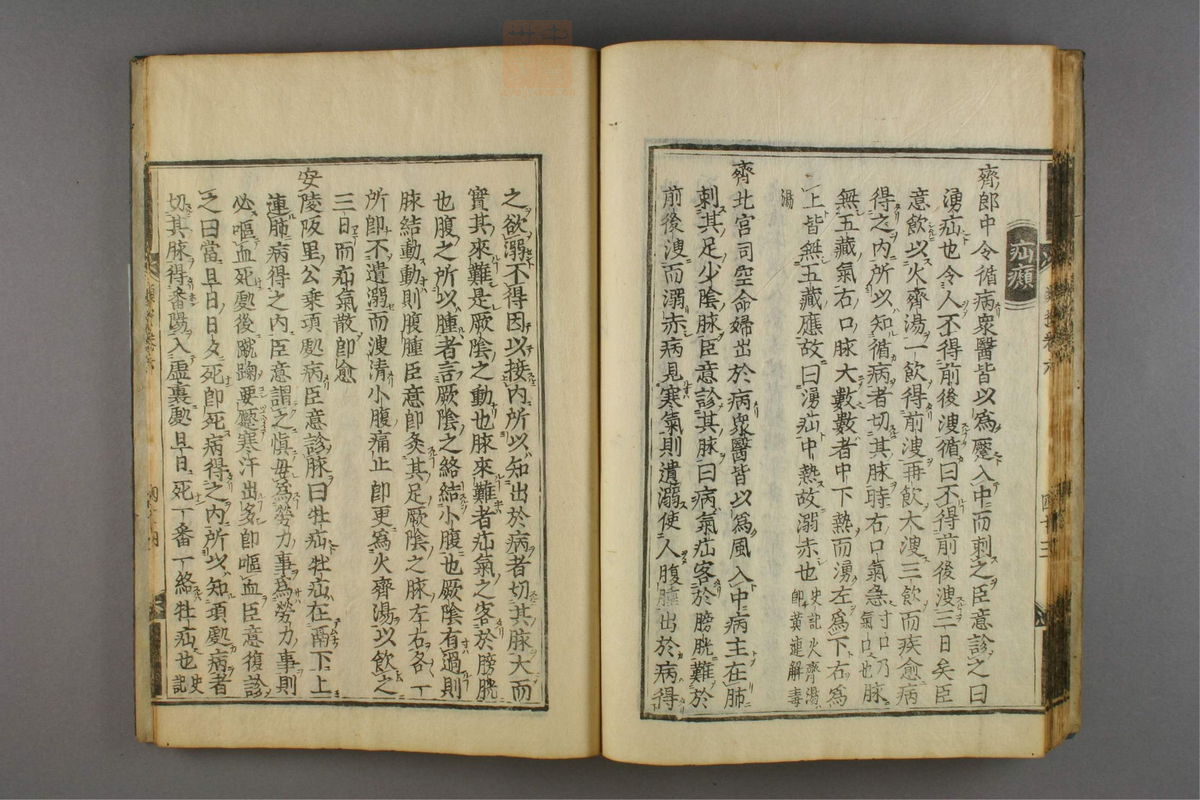 疝㿗
齊郎中令循病衆醫皆以爲蹷入中而刺之臣意診之曰
湧疝也令人不得前後溲循曰不得前後溲三日矣臣
意飲以火齊湯一飲得前溲再飲大溲三飲而疾愈病
得之内所以知循病者切其脉時右口氣急寸口乃氣口也脉
無五藏氣右口脉大數數者中下熱而湧左爲下右爲
上皆無五藏應故曰湧疝中熱故溺赤也史記火齊湯即黄連解毒
湯
齊北宮司空命婦出於病衆醫皆以爲風入中病主在肺
刺其足少陰脉臣意診其脉曰病氣疝客於膀胱難於
前後溲而溺赤病見寒氣則遺溺使人腹腫出於病得
之欲溺不得因以接内所以知出於病者切其脉大而
實其來難是厥陰之動也脉來難者疝氣之客於膀胱
也腹之所以腫者言厥陰之絡結小腹也厥陰有過則
脉結動動則腹腫臣意即灸其足厥陰之脉左右各一
所即不遺溺而溲清小腹痛止即更爲火齊湯以飲之
三日而疝氣散即愈
安陵阪里公乗項處病臣意診脉曰牡疝牡疝在鬲下上
連肺病得之内臣意謂之愼毋爲勞力事爲勞力事則
必嘔血死處後蹴踘要蹷寒汗出多即嘔血臣意復診
之曰當旦日日夕死即死病得之内所以知項處病者
切其脉得番陽入虚裏處旦日死一番一絡牡疝也史記